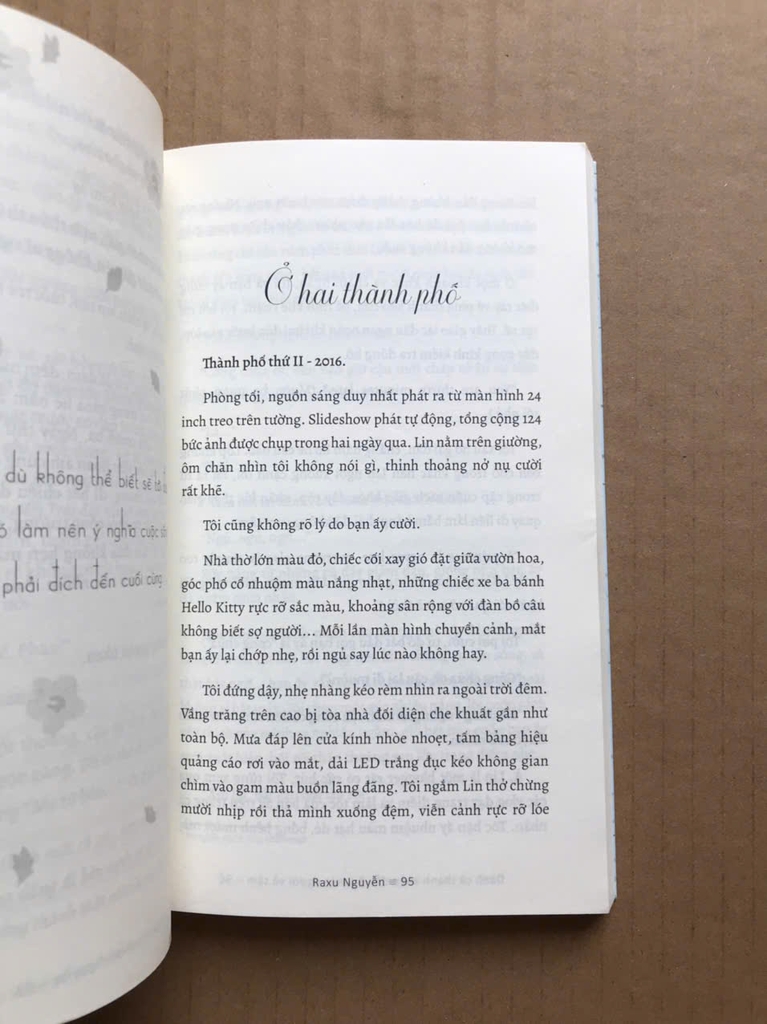 dù không thể biết sẽ
làm nên ý nghĩa cuộc
phải đích đến cuối cùng
Ở hai thành phố
Thành phố thứ II - 2016.
Phòng tối, nguồn sáng duy nhất phát ra từ màn hình 24
inch treo trên tường. Slideshow phát tự động, tổng cộng 124
bức ảnh được chụp trong hai ngày qua. Lin nằm trên giường,
ôm chăn nhìn tôi không nói gì, thinh thoảng nở nụ cười
rất khẽ.
Tôi cũng không rõ lý do bạn ấy cười.
Nhà thờ lớn màu đỏ, chiếc cối xay gió đặt giữa vườn hoa,
góc phố cổ nhuộm màu nắng nhạt, những chiếc xe ba bánh
Hello Kitty rực rỡ sắc màu, khoảng sân rộng với đàn bồ câu
không biết sợ người... Mỗi lần màn hình chuyển cảnh, mắt
bạn ấy lại chớp nhẹ, rồi ngủ say lúc nào không hay.
Tôi đứng dậy, nhẹ nhàng kéo rèm nhìn ra ngoài trời đêm.
Vầng trăng trên cao bị tòa nhà đối diện che khuất gần như
toàn bộ. Mưa đáp lên cửa kính nhòe nhoẹt, tấm bảng hiệu
quảng cáo rơi vào mắt, dải LED trắng đục kéo không gian
chìm vào gam màu buồn lãng đãng. Tôi ngắm Lin thở chừng
mười nhịp rồi thả mình xuống đệm, viễn cảnh rực rỡ lóe
Raxu Nguyễn = 95